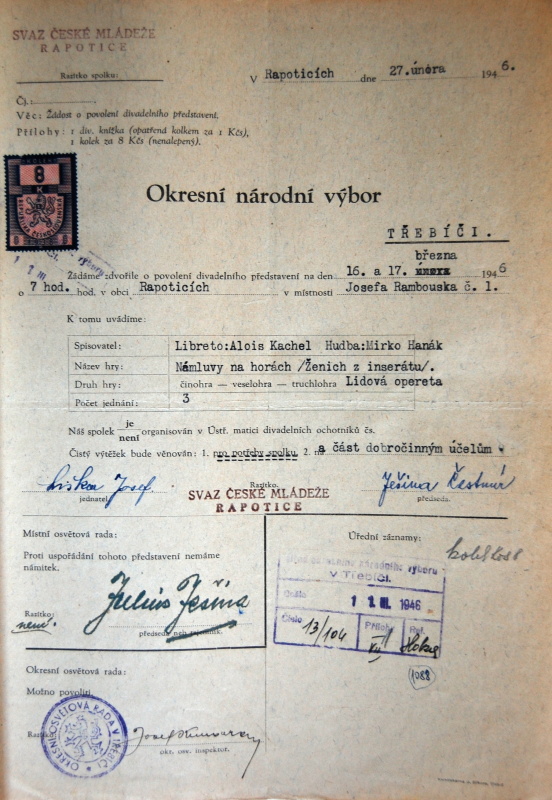 SVAZ ČESKÉ MLÁDEŽE
RAPOTICE
Razítko spolku:
V Rapoticích dne 27.února 1946.
Čj.:
Věc: Žádost o povolení divadelního představení.
Přílohy: 1 div. knížka (opatřená kolkem za 1 Kčs),
1 kolek za 8 Kčs (nenalepený).
8
K
REPUBLIKA ČESKOSLOVENSKÁ
Okresní národní výbor
TŘEBÍČI.
března
Žádáme zdvořile o povolení divadelního představení na den 16. a 17. února 1946
o 7 hod. hod. v obci Rapoticích v místnosti Josefa Rambouska č. 1.
K tomu uvádíme:
Spisovatel: Libreto:Alois Kachel Hudba:Mirko Hanák
Název hry: Námluvy na horách /Ženich z inserátu/.
Druh hry: činohra — veselohra — truchlohra Lidová opereta
Počet jednání: 3
Náš spolek je organisován v Ústř. matici divadelních ochotníků čs.
není
Čistý výtěžek bude věnován: 1. pro potřeby spolku 2. na a část dobročinným účelům
Liška Josef. Razítko. Ješina Čestmír
jednatel. předseda.
SVAZ ČESKÉ MLÁDEŽE
RAPOTICE
Místní osvětová rada:
Úřední záznamy:
Proti uspořádání tohoto představení nemáme
námitek.
V Třebíči.
Došlo 1 2. III. 1946
Číslo 13/104 Přílohy Ref.
Julius Ješina
Razítko:
není.
předseda neb jednatel.
1088
Okresní osvětová rada:
Možno povoliti.
Razítko:
OKRESNÍ OSVĚTOVÁ RADA V TŘEBÍČI
Josef
okr. osv. inspektor.